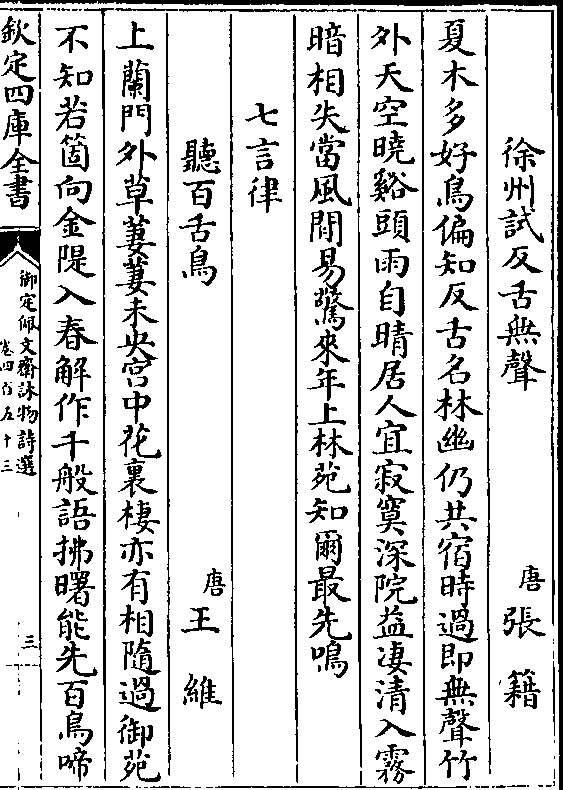 徐州試反舌無聲 唐 張籍
夏木多好鳥偏知反舌名林幽仍共宿時過即無聲竹
外天空曉谿頭雨自晴居人宜寂寞深院益凄清入霧
暗相失當風閒易驚來年上林苑知爾最先鳴
七言律
聽百舌鳥 唐 王維
上蘭門外草萋萋未央宮中花裏棲亦有相隨過御苑
不知若箇向金隄入春解作千般語拂曙能先百鳥啼
欽定四庫全書
御定佩文齋詠物詩選
卷四百五十三
三